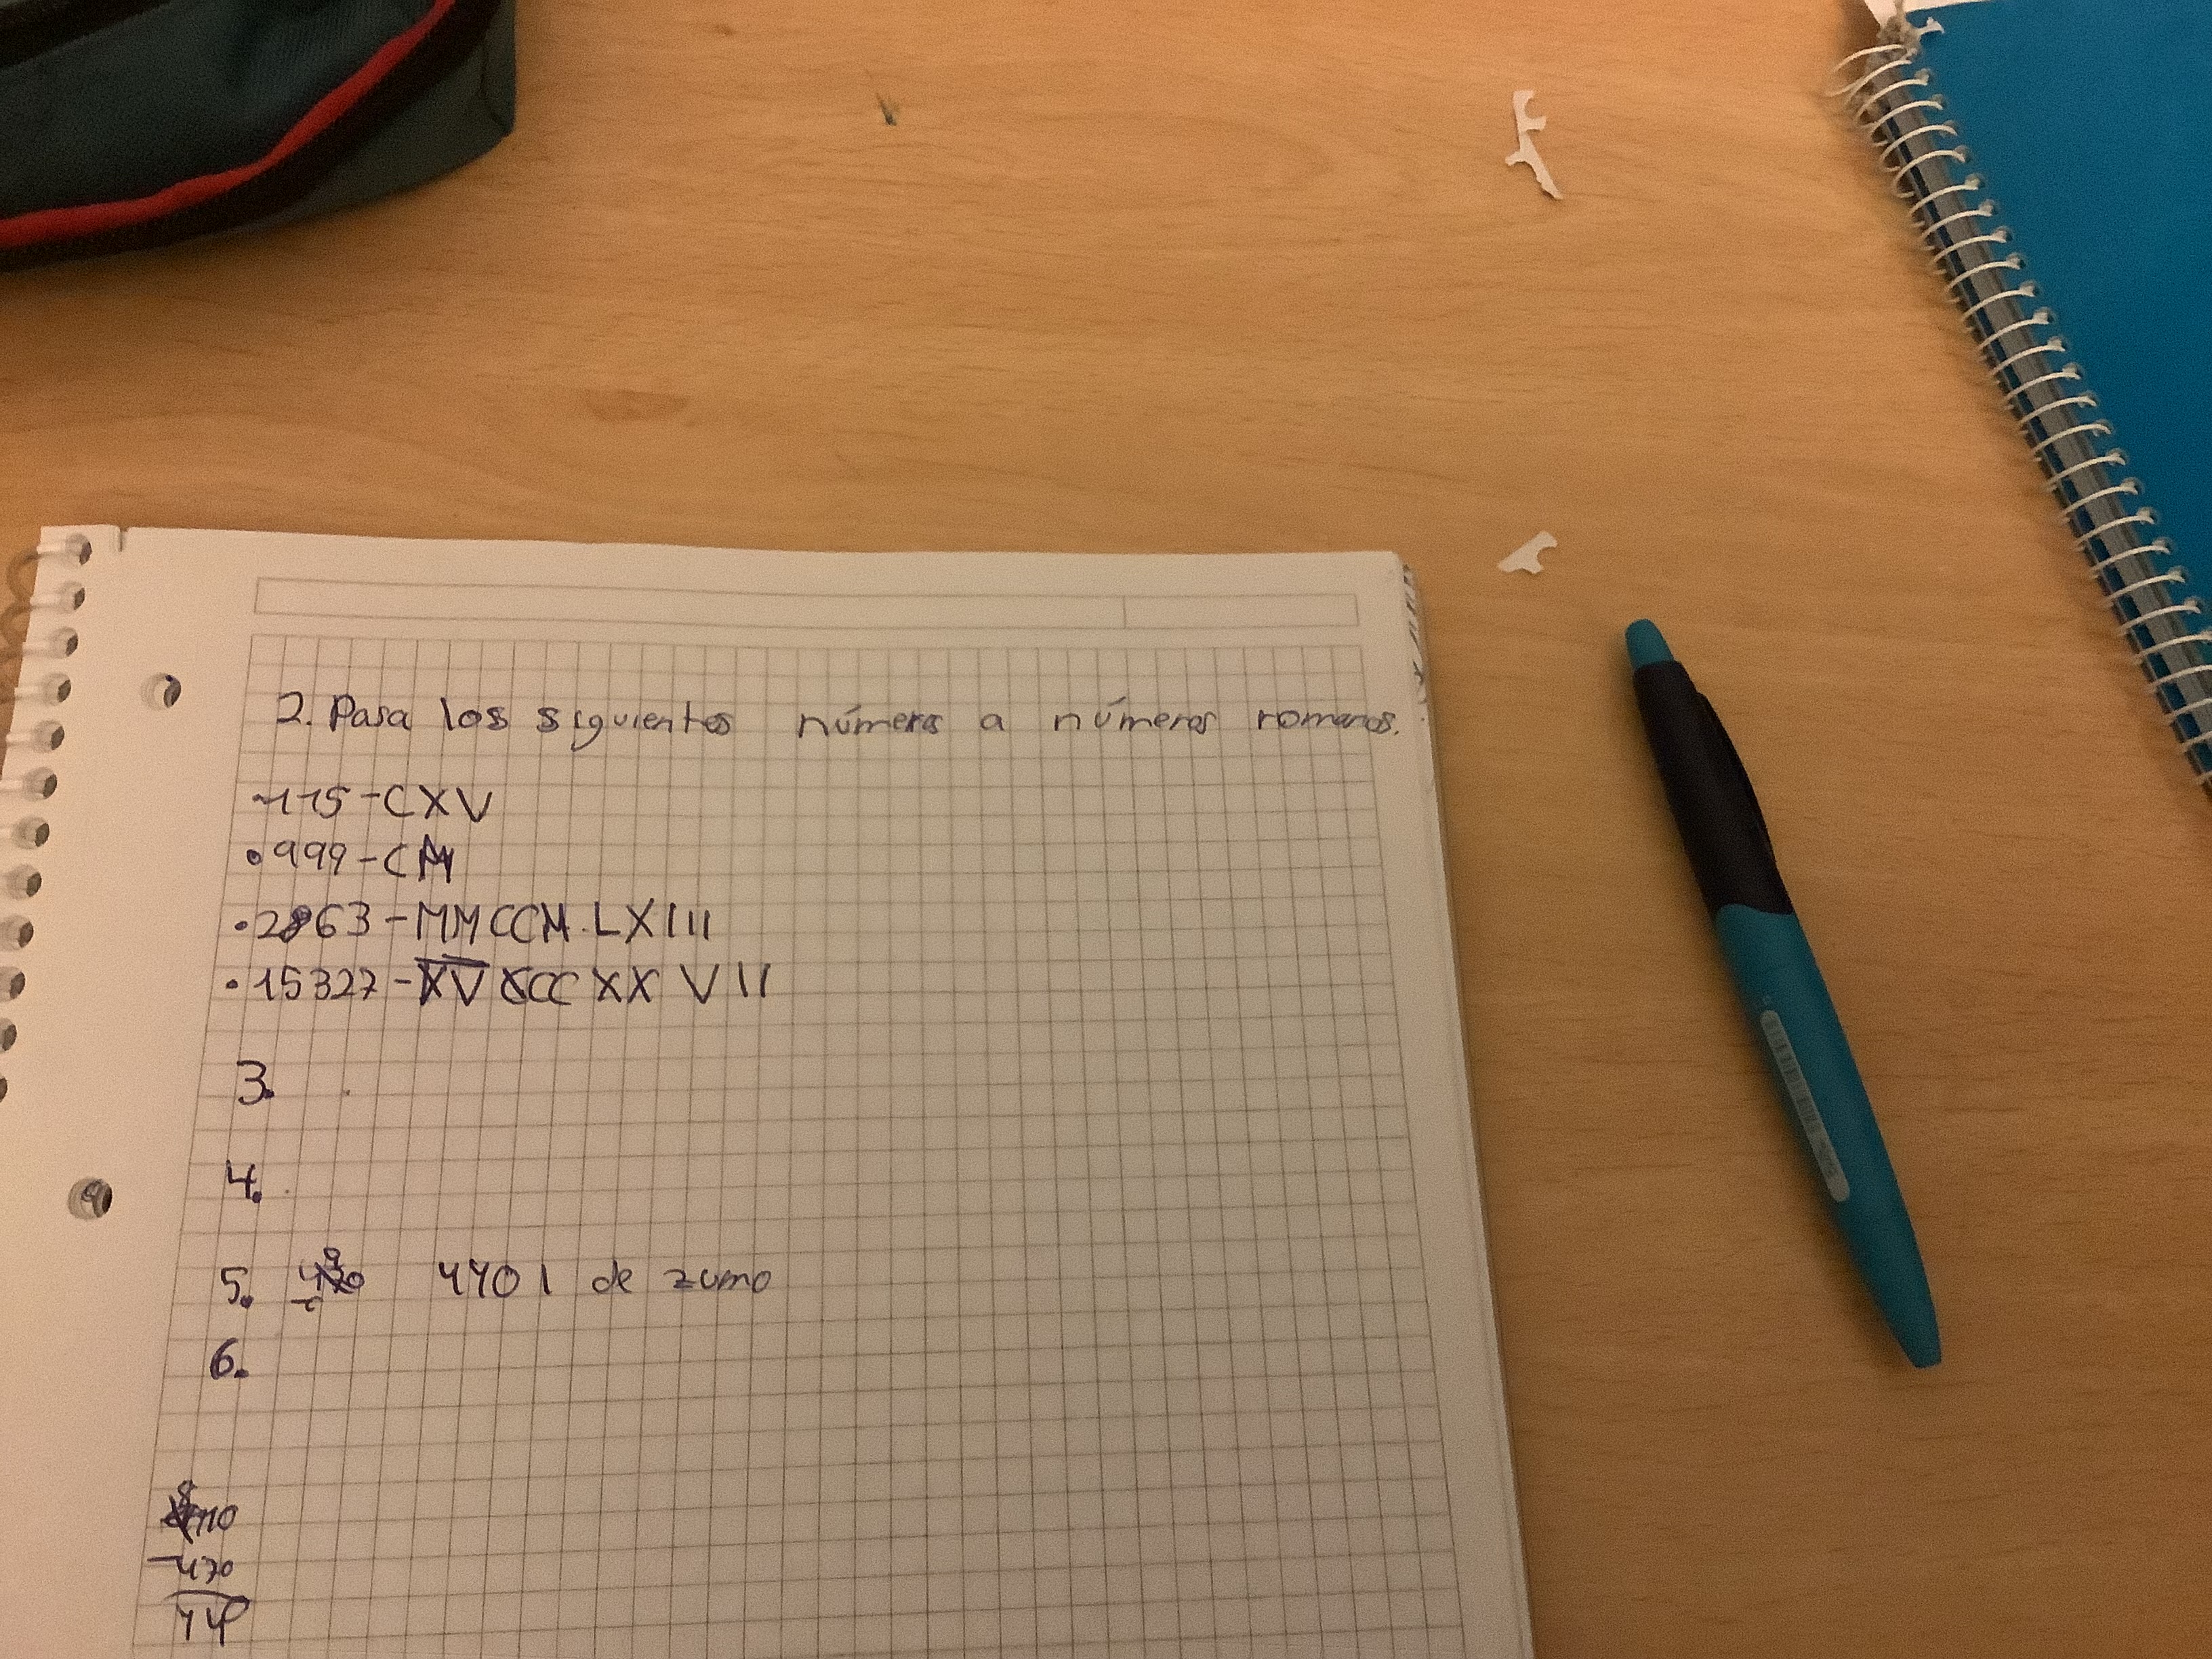 2. Pasa los siguientes números a números romanos.
·115-CXV
·999-CM
·2863-MMCCM LXIII
·15327-X̅V̅ CCC XX VII
3.
4.
5. 440 l de zumo
6.
-470